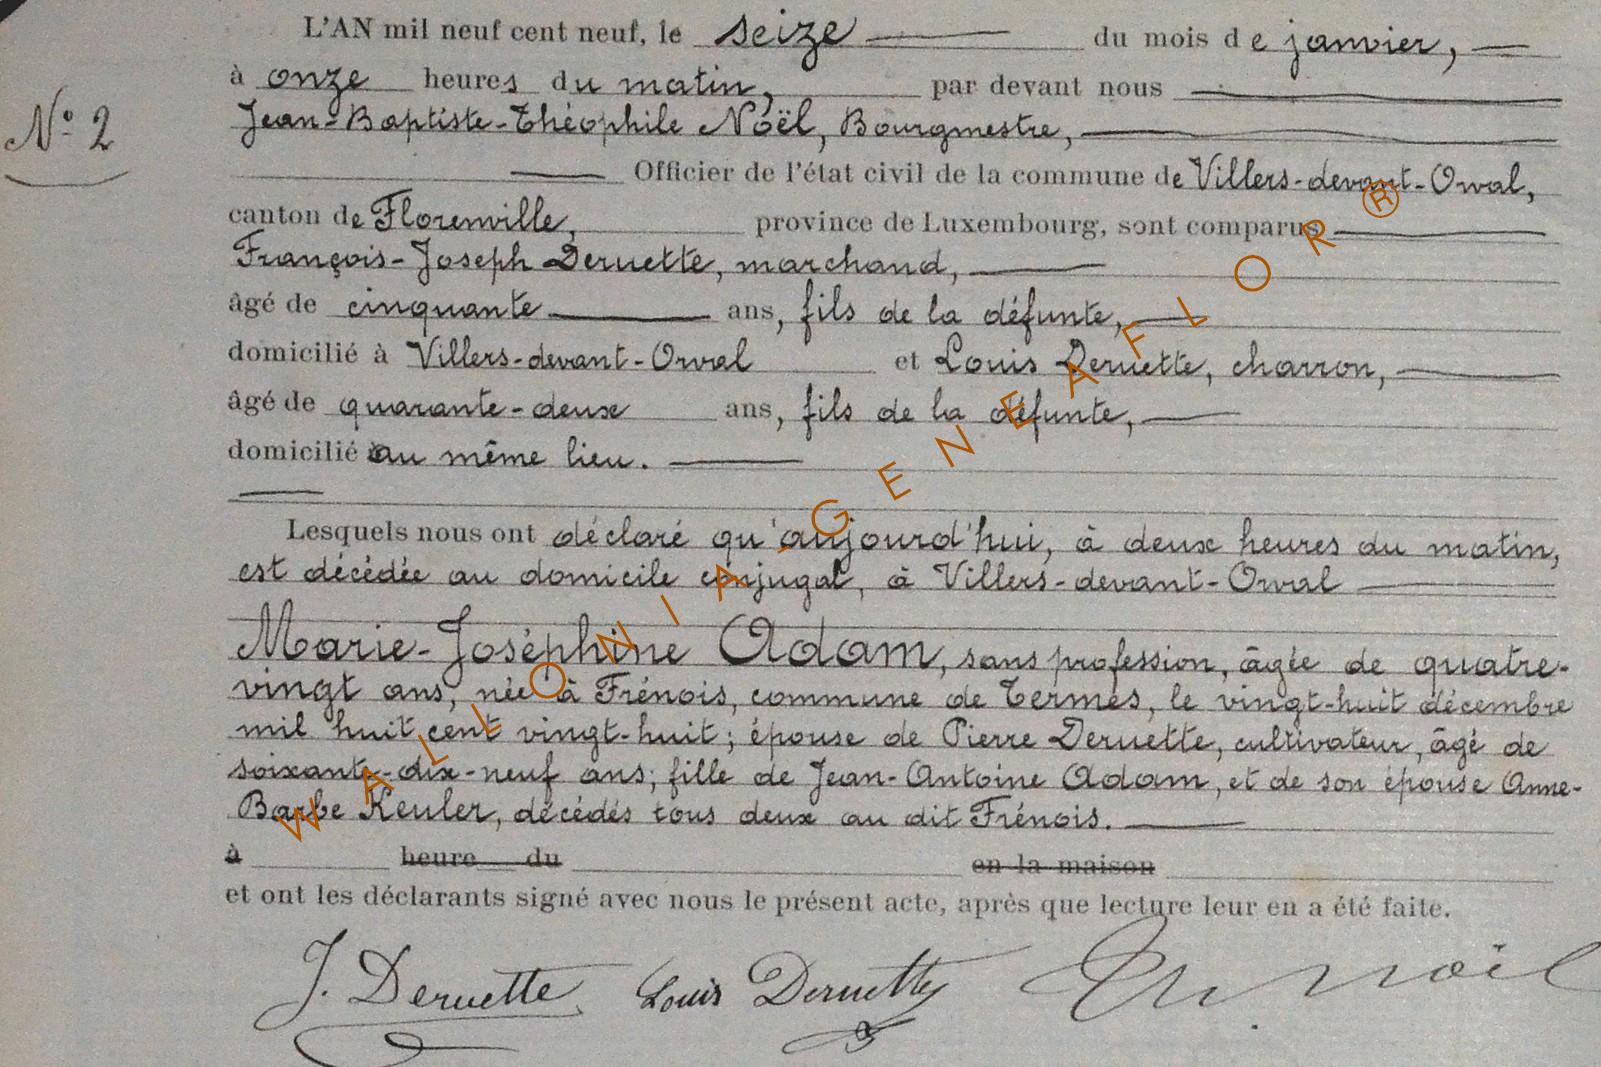 L'AN mil neuf cent neuf, le seize du mois de janvier,
à onze heures du matin, par devant nous
N° 2
Jean-Baptiste-Théophile Noël, Bourgmestre,
Officier de l'état civil de la commune de Villers-devant-Orval,
canton de Florenville, province de Luxembourg, sont comparus
François-Joseph Deruette, marchand,
âgé de cinquante ans, fils de la défunte,
domicilié à Villers-devant-Orval et Louis Deruette, charron,
âgé de quarante-deux ans, fils de la défunte,
domicilié au même lieu.
Lesquels nous ont déclaré qu'aujourd'hui, à deux heures du matin,
est décédée au domicile conjugal, à Villers-devant-Orval
Marie-Joséphine Adam, sans profession, âgée de quatre-
vingt ans, née à Frénois, commune de Termes, le vingt-huit décembre
mil huit cent vingt-huit; épouse de Pierre Deruette, cultivateur, âgé de
soixante-dix-neuf ans; fille de Jean-Antoine Adam, et de son épouse Anne-
Barbe Keuler, décédés tous deux au dit Frénois.
à heure du en la maison
et ont les déclarants signé avec nous le présent acte, après que lecture leur en a été faite.
J. Deruette Louis Deruette Noël
WALLONIA-GENEAFLOR®